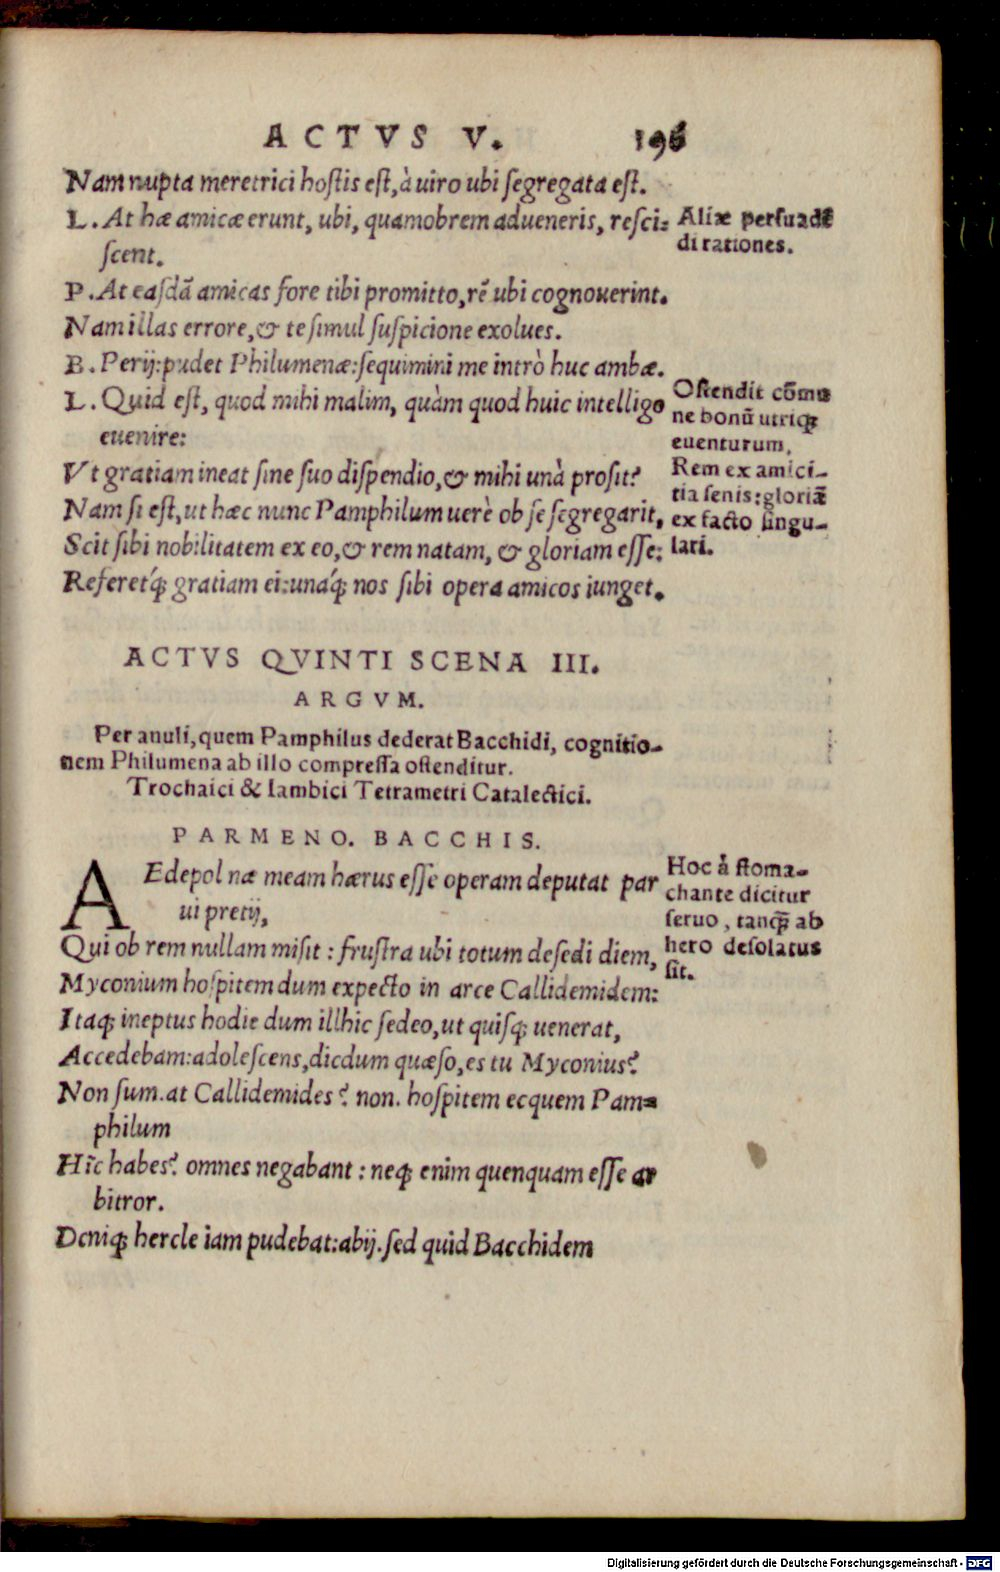 ACTVS V. 196
Nam nupta meretrici hostis est, à uiro ubi segregata est.
L. At hæ amicæ erunt, ubi, quamobrem adueneris, resci-
scent.
P. At easdã amicas fore tibi promitto, rẽ ubi cognouerint.
Nam illas errore, & te simul suspicione exolues.
B. Perij: pudet Philumenæ: sequimini me intrò huc ambæ.
L. Quid est, quod mihi malim, quàm quod huic intelligo
euenire:
Vt gratiam ineat sine suo dispendio, & mihi unà prosit?
Nam si est, ut hæc nunc Pamphilum uerè ob se segregarit,
Scit sibi nobilitatem ex eo, & rem natam, & gloriam esse:
Referetq́; gratiam ei: unaq́; nos sibi opera amicos iunget.
Aliæ persuadẽ
di rationes.
Ostendit cõmu
ne bonũ utriq;
euenturum,
Rem ex amici-
tia senis: gloriã
ex facto singu-
lari.
ACTVS QVINTI SCENA III.
ARGVM.
Per anuli, quem Pamphilus dederat Bacchidi, cognitio-
nem Philumena ab illo compressa ostenditur.
Trochaici & Iambici Tetrametri Catalectici.
PARMENO. BACCHIS.
AEdepol næ meam hærus esse operam deputat par
ui pretij,
Qui ob rem nullam misit: frustra ubi totum desedi diem,
Myconium hospitem dum expecto in arce Callidemidem:
Itaq; ineptus hodie dum illhic sedeo, ut quisq; uenerat,
Accedebam: adolescens, dicdum quæso, es tu Myconius?
Non sum. at Callidemides? non. hospitem ecquem Pam-
philum
Hîc habes? omnes negabant: neq; enim quenquam esse ar
bitror.
Deniq; hercle iam pudebat: abij. sed quid Bacchidem
Hoc à stoma-
chante dicitur
seruo, tanq̃ ab
hero desolatus
sit.
Digitalisierung gefördert durch die Deutsche Forschungsgemeinschaft - DFG